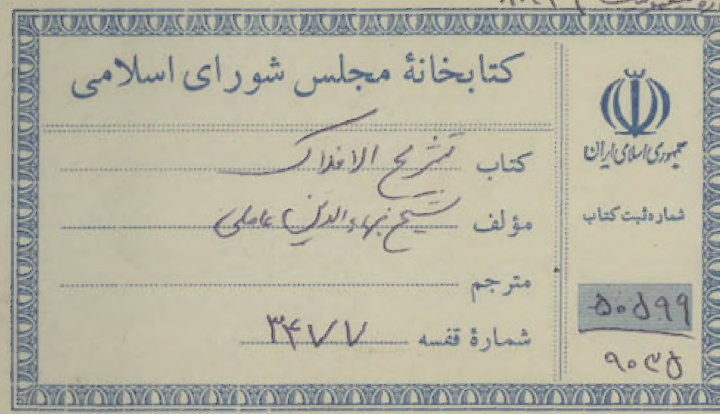 کتابخانهٔ مجلس شورای اسلامی
کتاب تشریح الافلاک
مؤلف شیخ بهاءالدین عاملی
مترجم
شمارهٔ قفسه ۳۴۷۷
جمهوری اسلامی ایران
شماره ثبت کتاب
۵۰۵۹۹
۹۰۳۵